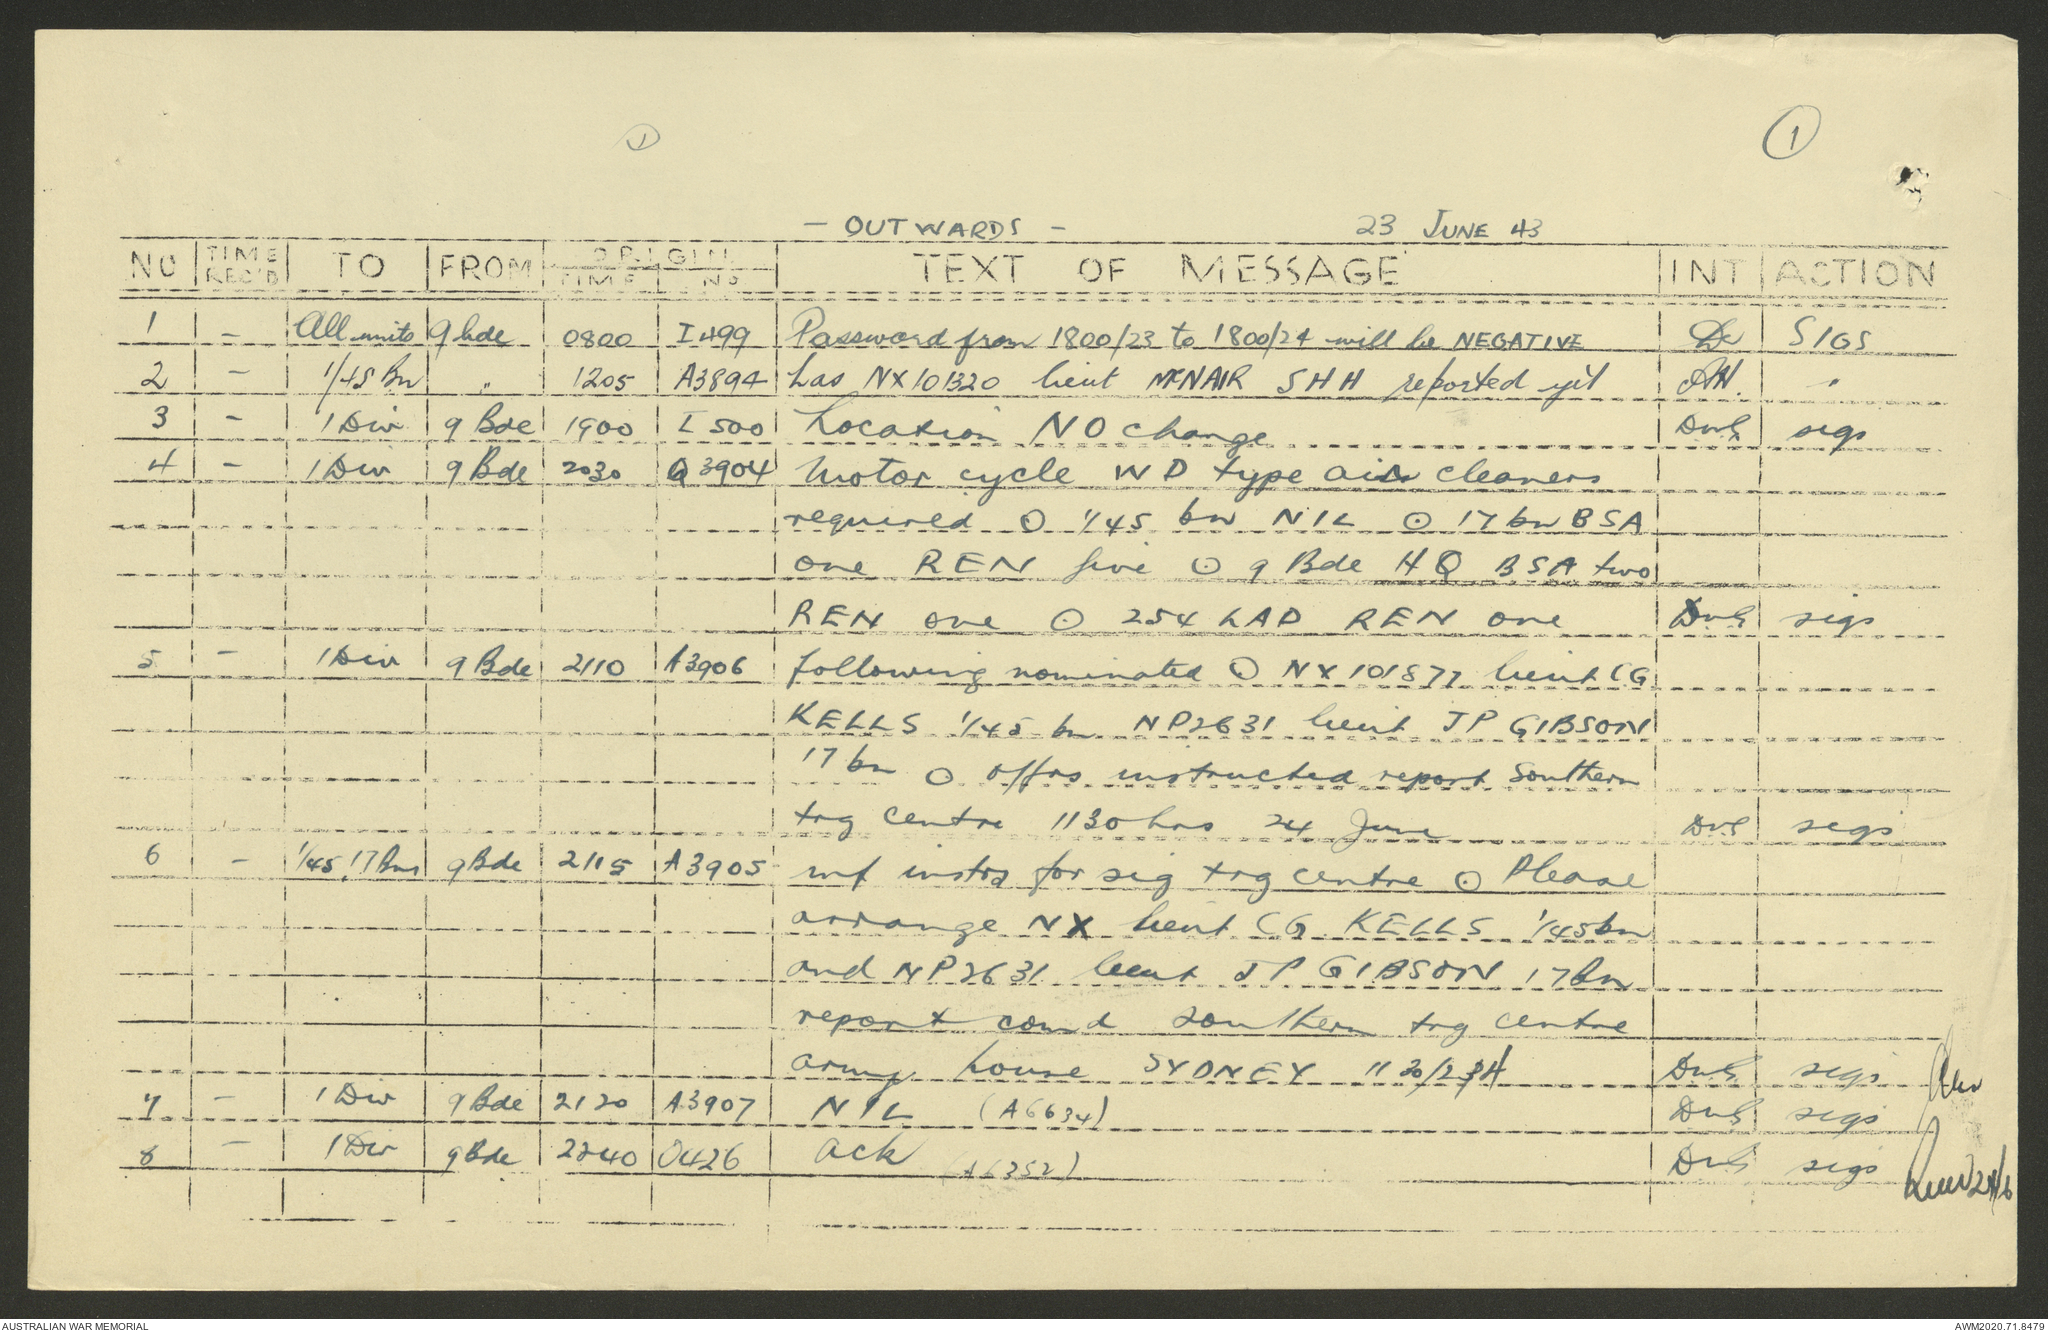 1
1
- OUTWARDS - 23 JUNE 43
NO TIME REC'D TO FROM ORIGIN TIME NO TEXT OF MESSAGE INT ACTION
1 - All units 9 bde 0800 I499 Password from 1800/23 to 1800/24 will be NEGATIVE SIGS
2 - 1/45 Bn " 1205 A3894 has NX101320 lieut McNAIR SHH reported yet "
3 - 1 Div 9 Bde 1900 I500 Location NO change sigs
4 - 1 Div 9 Bde 2030 Q3904 Motor cycle WD type air cleaners
required ⊙ 1/45 bn NIL ⊙ 17 bn BSA
one REN five ⊙ 9 Bde HQ BSA two
REN one ⊙ 254 LAD REN one sigs
5 - 1 Div 9 Bde 2110 A3906 following nominated ⊙ NX101877 lieut CG
KELLS 1/45 bn NP2631 lieut JP GIBSON
17 bn ⊙ offrs instructed report Southern
trg centre 1130 hrs 24 June sigs
6 - 1/45, 17 Bns 9 Bde 2115 A3905 inf instrs for sig trg centre ⊙ Please
arrange NX lieut CG KELLS 1/45 bn
and NP2631 lieut JP GIBSON 17 Bn
report comd southern trg centre
army house SYDNEY sigs
7 - 1 Div 9 Bde 2120 A3907 NIL (A6634) sigs
8 - 1 Div 9 Bde 2240 O426 ack (A6352) sigs
24/6
AUSTRALIAN WAR MEMORIAL AWM2020.71.8479